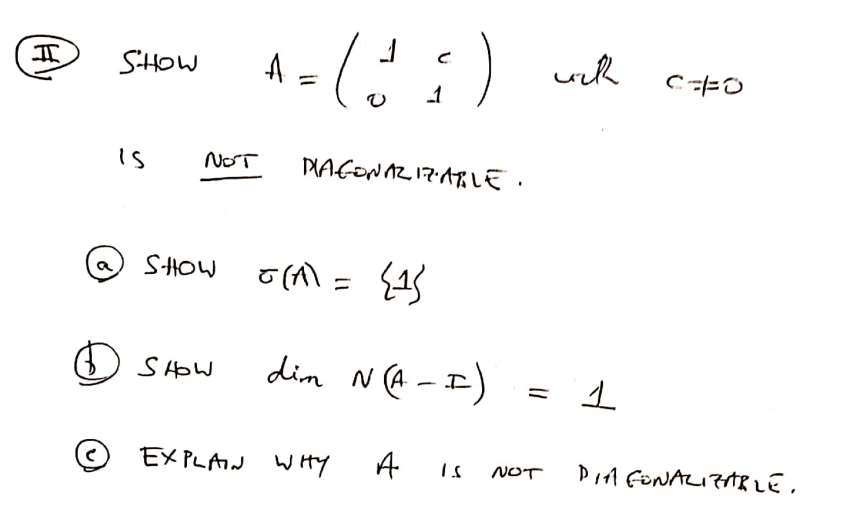 II SHOW A = ( 1 c ; 0 1 ) with c ≠ 0
IS NOT DIAGONALIZABLE.
(a) SHOW σ(A) = {1}
(b) SHOW dim N(A - I) = 1
(c) EXPLAIN WHY A IS NOT DIAGONALIZABLE.